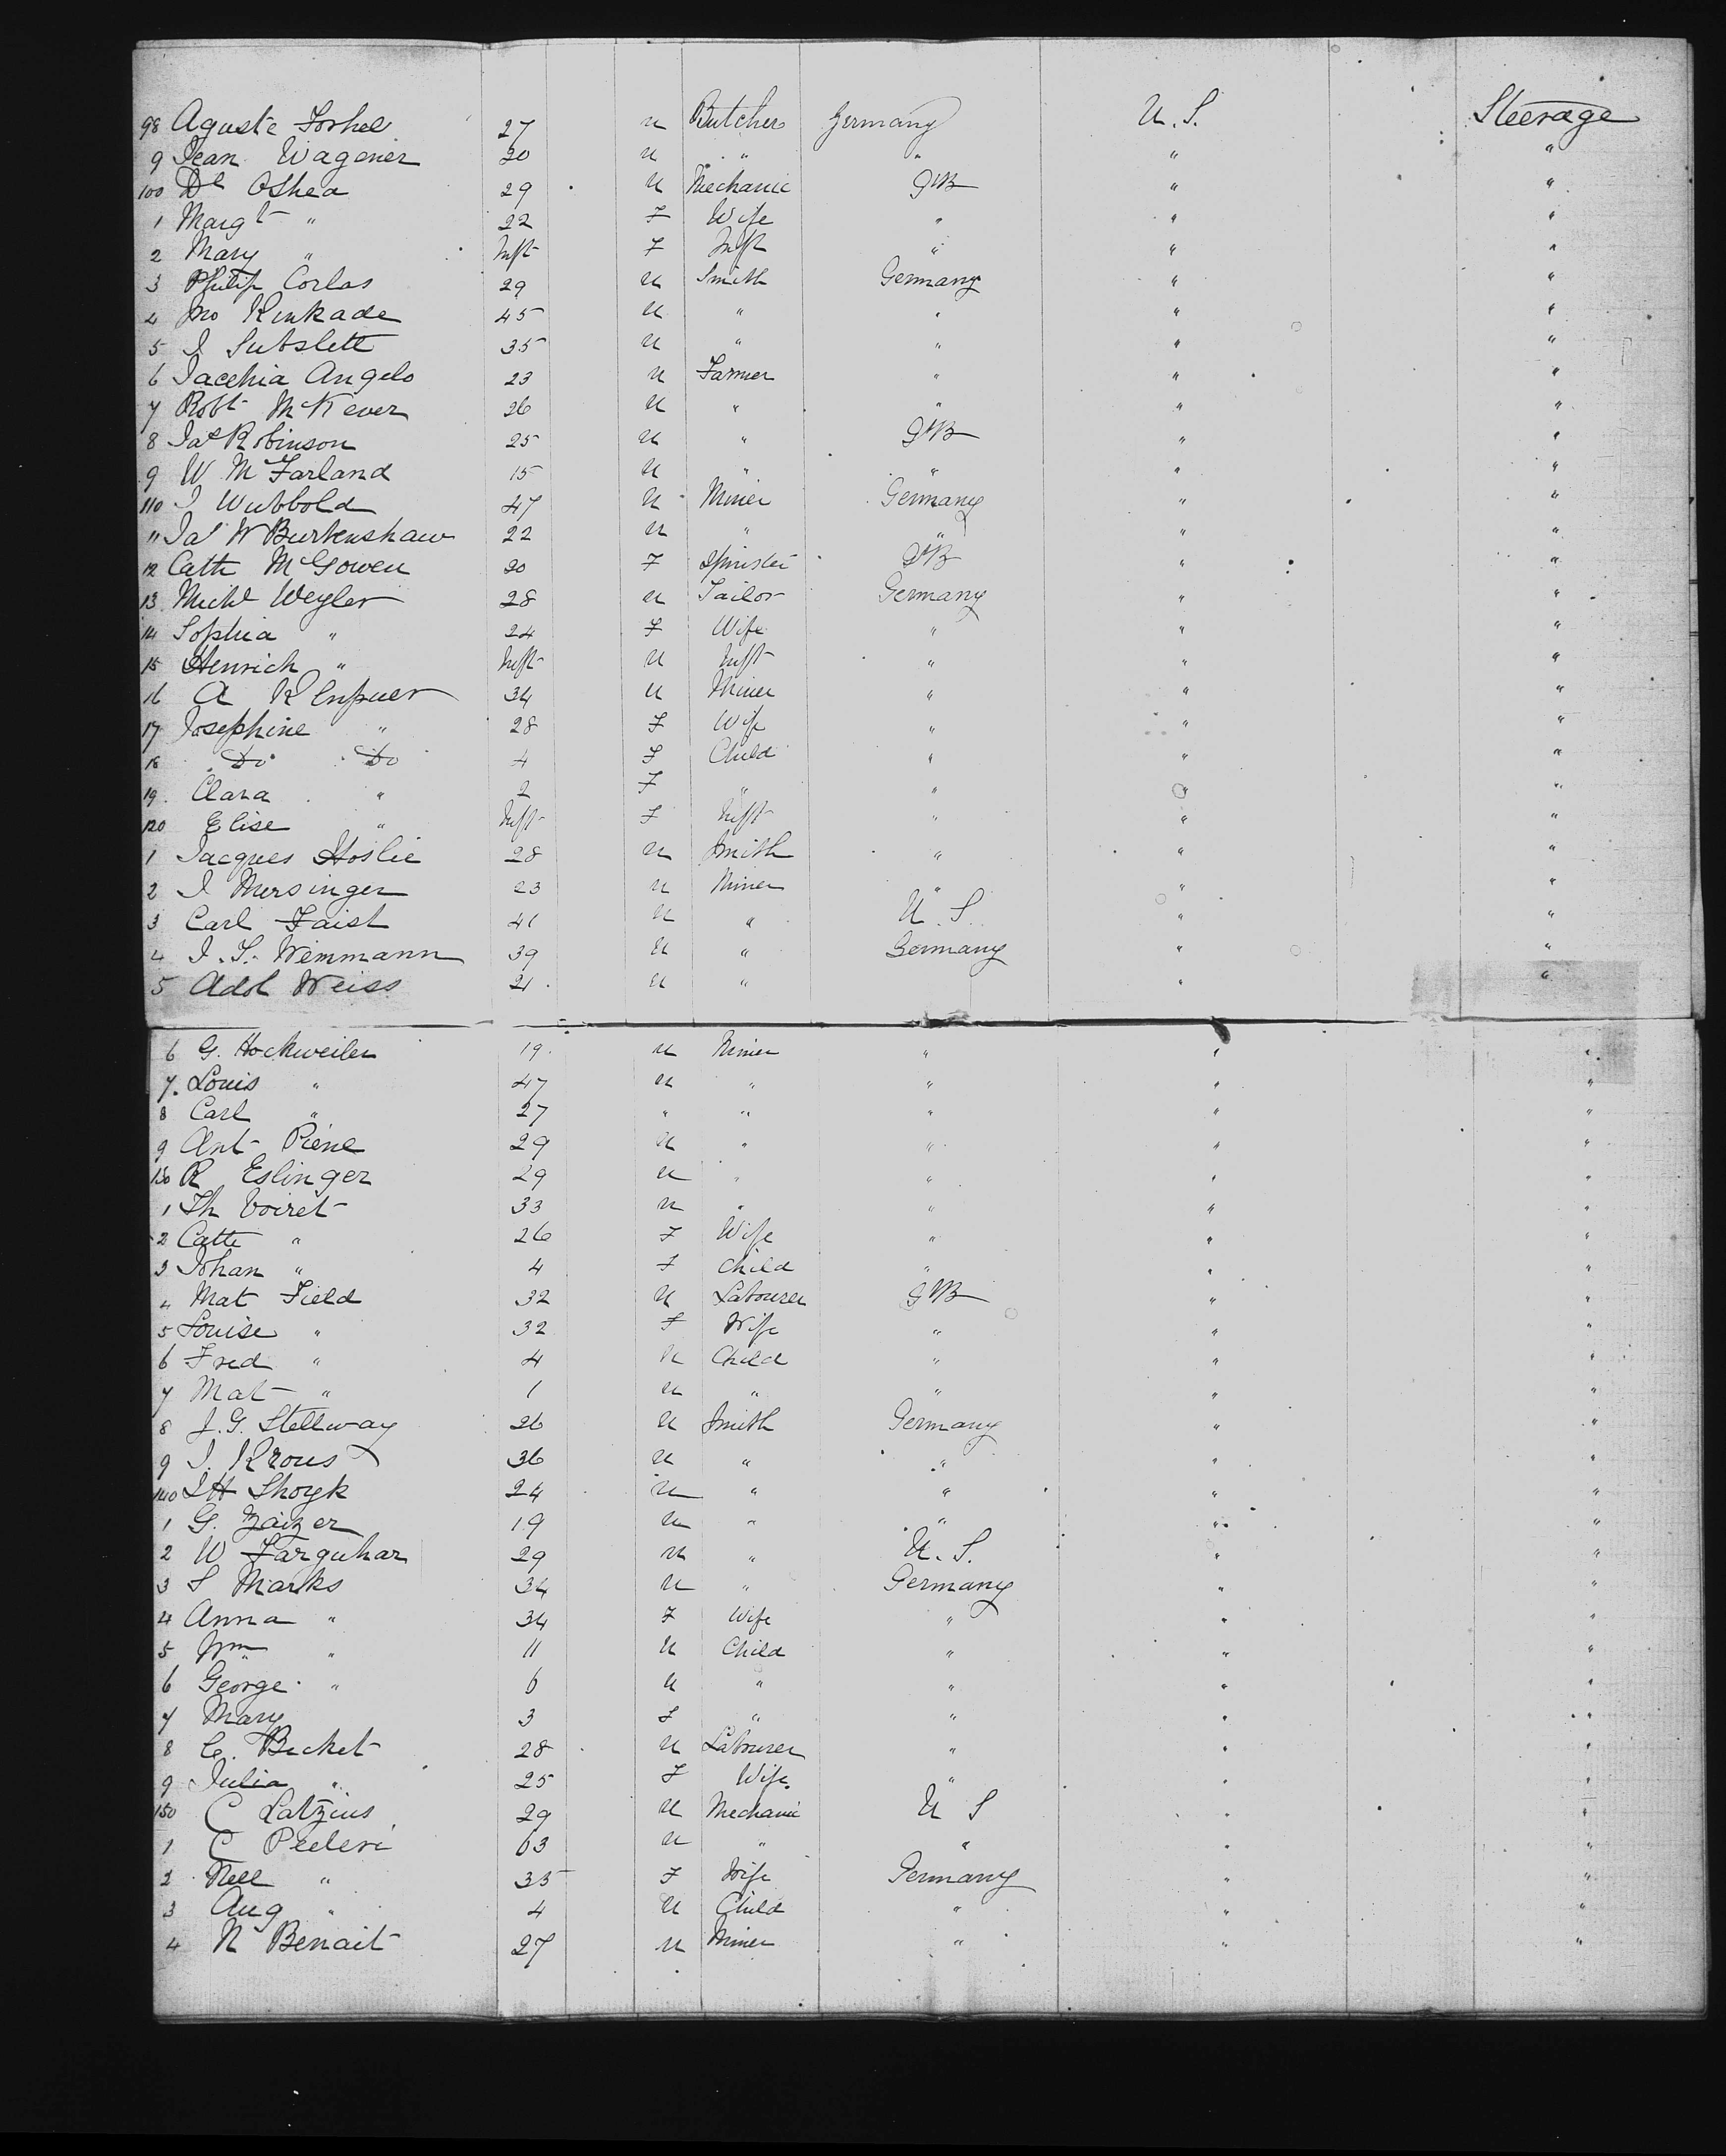 98 Aguste Forhel 27 M Butcher Germany U.S. Steerage
9 Jean Wagener 20 M " " " "
100 Dl OShea 29 M Mechanic GB " "
1 Margt " 22 F Wife " " "
2 Mary " Inft F Inft " " "
3 Philip Corlas 29 M Smith Germany " "
4 Jno Kinkade 45 M " " " "
5 J Subslett 35 M " " " "
6 Jacchia Angelo 23 M Farmer " " "
7 Robt McKever 26 M " " " "
8 Jas Robinson 25 M " GB " "
9 W McFarland 15 M " " " "
110 J Wubbold 47 M Miner Germany " "
11 Jas W Burkenshaw 22 M " " " "
12 Cath McGowen 20 F Spinster GB " "
13 Michl Weyler 28 M Tailor Germany " "
14 Sophia " 24 F Wife " " "
15 Henrich " Inft M Inft " " "
16 A Klenpner 34 M Miner " " "
17 Josephine " 28 F Wife " " "
18 Do Do 4 F Child " " "
19 Clara " 2 F " " " "
120 Elise " Inft F Inft " " "
1 Jacques Hoslie 28 M Smith " " "
2 J Mersinger 23 M Miner " " "
3 Carl Faist 41 M " U S " "
4 J.S. Wemmann 39 M " Germany " "
5 Adol Weiss 21 M " " "
6 G. Hockweiler 19 M Miner " " "
7 Louis " 47 M " " " "
8 Carl " 27 " " " " "
9 Ant Piene 29 M " " " "
130 R Eslinger 29 M " " " "
1 Th Voiret 33 M " " " "
2 Cath " 26 F Wife " " "
3 Johan " 4 F Child " " "
4 Mat Field 32 M Labourer GB " "
5 Louise " 32 F Wife " " "
6 Fred " 4 M Child " " "
7 Mat " 1 M " " " "
8 J.G. Stellway 26 M Smith Germany " "
9 J. Krous 36 M " " " "
140 J H Shoyk 24 M " " " "
1 G. Zaizer 19 M " " " "
2 W Farquhar 29 M " U.S. " "
3 S Marks 34 M " Germany " "
4 Anna " 34 F Wife " " "
5 Wm " 11 M Child " " "
6 George " 6 M " " " "
7 Mary 3 F " " " "
8 C. Becket 28 M Labourer " " "
9 Julia " 25 F Wife " " "
150 C Latzius 29 M Mechanic U S " "
1 C Pederi 63 M " " " "
2 Nell " 35 F Wife Germany " "
3 Aug " 4 M Child " " "
4 N Benait 27 M Miner " " "